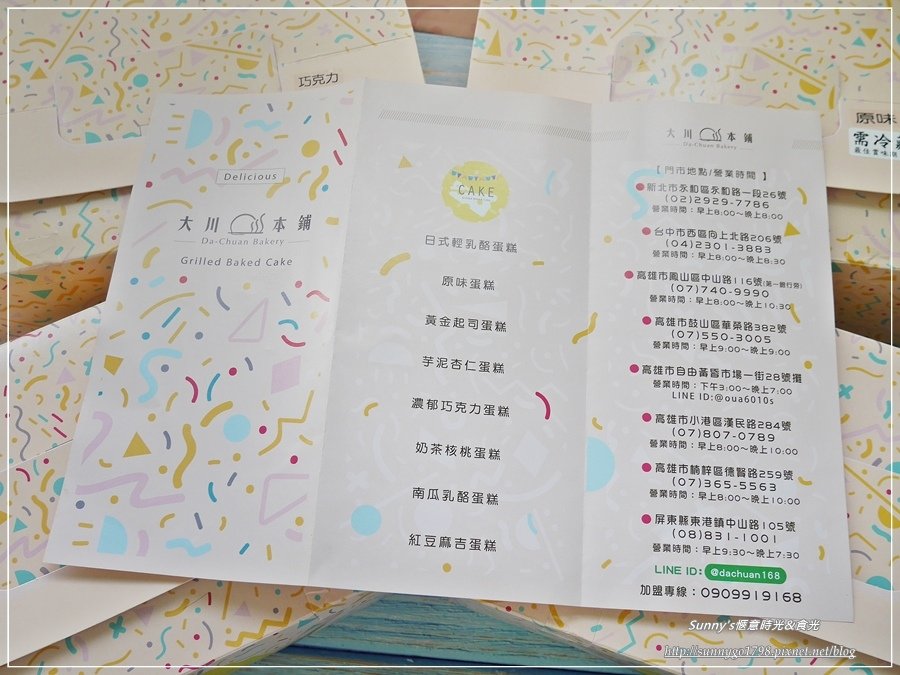 巧克力
原味
需冷藏
Delicious
大川本鋪
Da-Chuan Bakery
Grilled Baked Cake
CAKE
日式輕乳酪蛋糕
原味蛋糕
黃金起司蛋糕
芋泥杏仁蛋糕
濃郁巧克力蛋糕
奶茶核桃蛋糕
南瓜乳酪蛋糕
紅豆麻吉蛋糕
大川本鋪
Da-Chuan Bakery
【門市地點/營業時間】
新北市永和區永和路一段26號
(02)2929-7786
營業時間:早上8:00~晚上8:00
台中市西區向上北路206號
(04)2301-3883
營業時間:早上8:00~晚上8:30
高雄市鳳山區中山路116號(第一銀行旁)
(07)740-9990
營業時間:早上8:00~晚上10:30
高雄市鼓山區華榮路382號
(07)550-3005
營業時間:早上9:00~晚上9:00
高雄市自由黃昏市場一街28號攤
營業時間:下午3:00~晚上7:00
LINE ID:@oua6010s
高雄市小港區漢民路284號
(07)807-0789
營業時間:早上8:00~晚上10:00
高雄市楠梓區德賢路259號
(07)365-5563
營業時間:早上8:00~晚上10:00
屏東縣東港鎮中山路105號
(08)831-1001
營業時間:早上9:30~晚上7:30
LINE ID: @dachuan168
加盟專線:0909919168
Sunny's愜意時光&食光
http://sunnygo1798.pixnet.net/blog